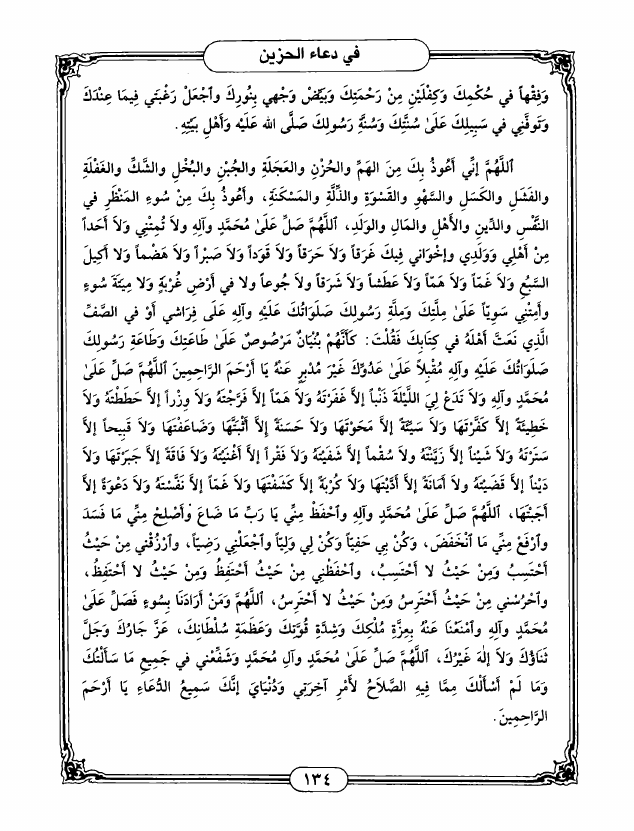 في دعاء الحزين
وَفِقْهاً في حُكْمِكَ وَكِفْلَيْنِ مِنْ رَحْمَتِكَ وَبَيِّضْ وَجْهي بِنُورِكَ وٱجْعَلْ رَغْبَتي فِيمَا عِنْدَكَ
وَتَوَفَّنِي في سَبِيلِكَ عَلَىٰ سُنَّتِكَ وَسُنَّةِ رَسُولِكَ صَلَّى الله عَلَيْهِ وَأَهْلِ بَيْتِهِ.
ٱللَّهُمَّ إنِّي أَعُوذُ بِكَ مِنَ الهَمِّ والحُزْنِ والعَجَلَةِ والجُبْنِ والبُخْلِ والشَّكِّ والغَفْلَةِ
والفَشَلِ والكَسَلِ والسَّهْوِ والقَسْوَةِ والذِّلَّةِ والمَسْكَنَةِ، وَأَعُوذُ بِكَ مِنْ سُوءِ المَنْظَرِ في
النَّفْسِ والدِّينِ والأَهْلِ والمَالِ والوَلَدِ، ٱللَّهُمَّ صَلِّ عَلَىٰ مُحَمَّدٍ وَآلِهِ ولاَ تُمِتْنِي وَلاَ أَحَداً
مِنْ أَهْلِي وَوَلَدِي وإخْوَاني فِيكَ غَرَقاً وَلاَ حَرَقاً وَلاَ قَوَداً وَلاَ صَبْراً وَلاَ هَضْماً وَلا أَكِيلَ
السَّبُعِ وَلاَ غَمّاً وَلاَ هَمّاً وَلاَ عَطَشاً وَلاَ شَرَقاً ولاَ جُوعاً ولا في أَرْضِ غُرْبَةٍ وَلا مِيتَةَ سُوءٍ
وأَمِتْنِي سَوِيّاً عَلَىٰ مِلَّتِكَ وَمِلَّةِ رَسُولِكَ صَلَوَاتُكَ عَلَيْهِ وَآلِهِ عَلَى فِرَاشي أَوْ في الصَّفِّ
الَّذِي نَعَتَّ أَهْلَهُ في كِتَابِكَ فَقُلْتَ: كَأَنَّهُمْ بُنْيَانٌ مَرْصُوصٌ عَلَىٰ طَاعَتِكَ وَطَاعَةِ رَسُولِكَ
صَلَوَاتُكَ عَلَيْهِ وَآلِهِ مُقْبِلاً عَلَىٰ عَدُوِّكَ غَيْرَ مُدْبِرٍ عَنْهُ يَا أَرْحَمَ الرَّاحِمِينَ ٱللَّهُمَّ صَلِّ عَلَىٰ
مُحَمَّدٍ وآلِهِ وَلاَ تَدَعْ لِيَ اللَّيْلَةَ ذَنْباً إلاَّ غَفَرْتَهُ وَلاَ هَمّاً إلاَّ فَرَّجْتَهُ وَلاَ وِزْراً إلاَّ حَطَطْتَهُ وَلاَ
خَطِيئَةً إلاَّ كَفَّرْتَهَا وَلاَ سَيِّئَةً إلاَّ مَحَوْتَهَا وَلاَ حَسَنَةً إِلاَّ أَثْبَتَّهَا وَضَاعَفْتَهَا وَلاَ قَبِيحاً إلاَّ
سَتَرْتَهُ وَلاَ شَيْناً إلاَّ زَيَّنْتَهُ ولاَ سُقْماً إلاَّ شَفَيْتَهُ وَلاَ فَقْراً إلاَّ أَغْنَيْتَهُ وَلاَ فَاقَةً إلاَّ جَبَرْتَهَا وَلاَ
دَيْناً إلاَّ قَضَيْتَهُ ولاَ أَمَانَةً إلاَّ أَدَّيْتَهَا وَلاَ كُرْبَةً إلاَّ كَشَفْتَهَا وَلاَ غَمّاً إلاَّ نَفَّسْتَهُ وَلاَ دَعْوَةً إلاَّ
أَجَبْتَهَا، ٱللَّهُمَّ صَلِّ عَلَىٰ مُحَمَّدٍ وآلِهِ وٱحْفَظْ مِنِّي يَا رَبِّ مَا ضَاعَ وَأَصْلِحْ مِنِّي مَا فَسَدَ
وٱرْفَعْ مِنِّي مَا ٱنْخَفَضَ، وَكُنْ بِي حَفِيّاً وَكُنْ لِي وَلِيّاً وٱجْعَلْنِي رَضِيّاً، وٱرْزُقْنِي مِنْ حَيْثُ
أَحْتَسِبُ وَمِنْ حَيْثُ لا أَحْتَسِبُ، وٱحْفَظْنِي مِنْ حَيْثُ أَحْتَفِظُ وَمِنْ حَيْثُ لا أَحْتَفِظُ،
وٱحْرُسْنِي مِنْ حَيْثُ أَحْتَرِسُ وَمِنْ حَيْثُ لا أَحْتَرِسُ، ٱللَّهُمَّ وَمَنْ أَرَادَنَا بِسُوءٍ فَصَلِّ عَلَىٰ
مُحَمَّدٍ وآلِهِ وٱمْنَعْنَا عَنْهُ بِعِزَّةِ مُلْكِكَ وَشِدَّةِ قُوَّتِكَ وَعَظَمَةِ سُلْطَانِكَ، عَزَّ جَارُكَ وَجَلَّ
ثَنَاؤُكَ وَلاَ إلٰهَ غَيْرُكَ، ٱللَّهُمَّ صَلِّ عَلَىٰ مُحَمَّدٍ وآلِ مُحَمَّدٍ وَشَفِّعْنِي في جَمِيعِ مَا سَأَلْتُكَ
وَمَا لَمْ أَسْأَلْكَ مِمَّا فِيهِ الصَّلاَحُ لأَمْرِ آخِرَتِي وَدُنْيَايَ إنَّكَ سَمِيعُ الدُّعَاءِ يَا أَرْحَمَ
الرَّاحِمِينَ.
١٣٤